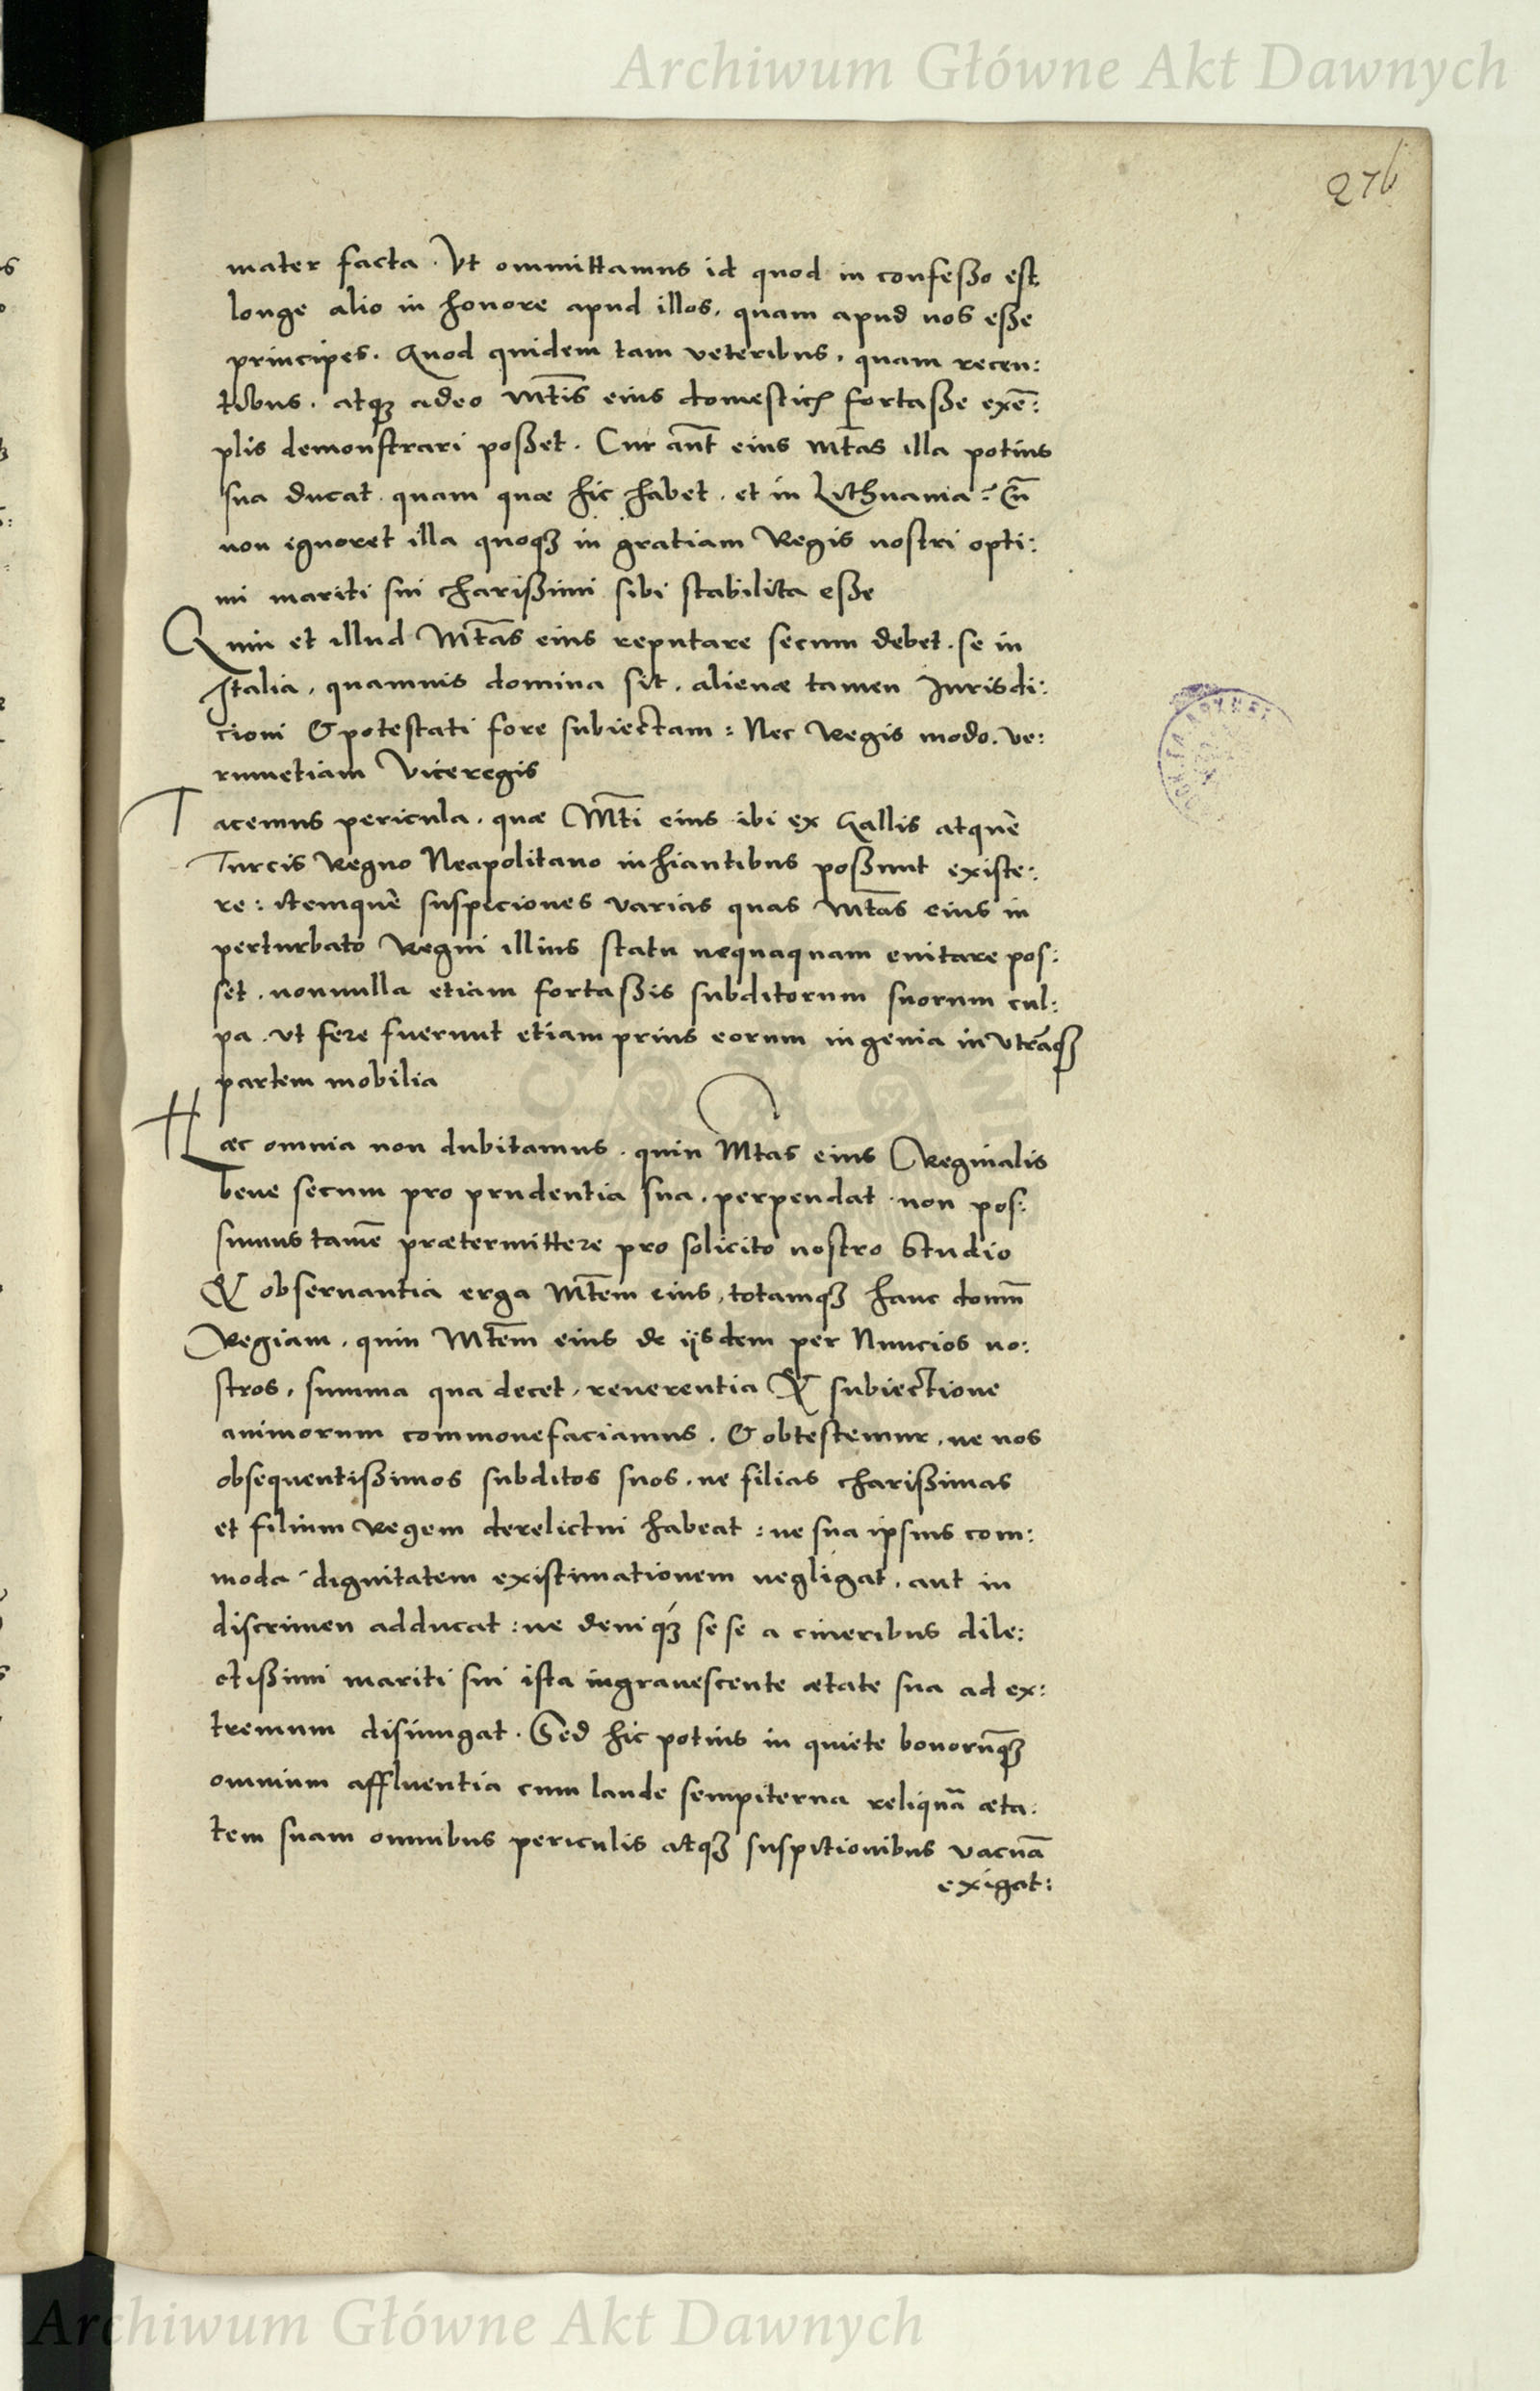 Archiwum Główne Akt Dawnych
276
mater facta. Vt ommittamus id quod in confeßo est
longe alio in honore apud illos, quam apud nos eße
principes. Quod quidem tam veteribus, quam recen:
tibus. atqꝫ adeo Mt̄is eius domesticꝭ fortaße exē:
plis demonstrari poßet. Cur aut̄ eius Mt̄as illa potius
sua ducat quam quæ hic habet. et in Lithuania? Cū
non ignoret illa quoqꝫ in gratiam Regis nostri opti:
mi mariti sui charißimi sibi stabilita eße
Quin et illud Mt̄as eius reputare secum debet. se in
Italia, quamuis domina sit, alienæ tamen Jurisdi:
cioni & potestati fore subiectam: Nec Regis modo. ve:
rumetiam Viceregis
Tacemus pericula. quæ Mt̄i eius ibi ex Gallis atque
Turcis Regno Neapolitano inhiantibus poßunt existe:
re: itemque suspiciones varias quas Mt̄as eius in
perturbato Regni illius statu nequaquam euitare pos:
set. nonnulla etiam fortaßis subditorum suorum cul:
pa. vt fere fuerunt etiam prius eorum ingenia in vtrāqꝫ
partem mobilia
Hæc omnia non dubitamus. quin Mtas eius Reginalis
bene secum pro prudentia sua. perpendat. non pos:
sumus tamē prætermittere pro solicito nostro Studio
& obseruantia erga Mt̄em eius, totamqꝫ hanc domū
Regiam. quin Mt̄em eius de ijsdem per Nuncios no:
stros, summa qua decet, reuerentia & subiectione
animorum commonefaciamus. & obtestemur, ne nos
obsequentißimos subditos suos. ne filias charißimas
et filium Regem derelictui habeat: ne sua ipsius com:
moda dignitatem existimationem negligat, aut in
discrimen adducat: ne deniqꝫ sese a cineribus dile:
ctißimi mariti sui ista ingrauescente ætate sua ad ex:
tremum disiungat. Sed hic potius in quiete bonorūqꝫ
omnium affluentia cum laude sempiterna reliquā æta:
tem suam omnibus periculis atqꝫ suspitionibus vacuā
exigat:
Archiwum Główne Akt Dawnych